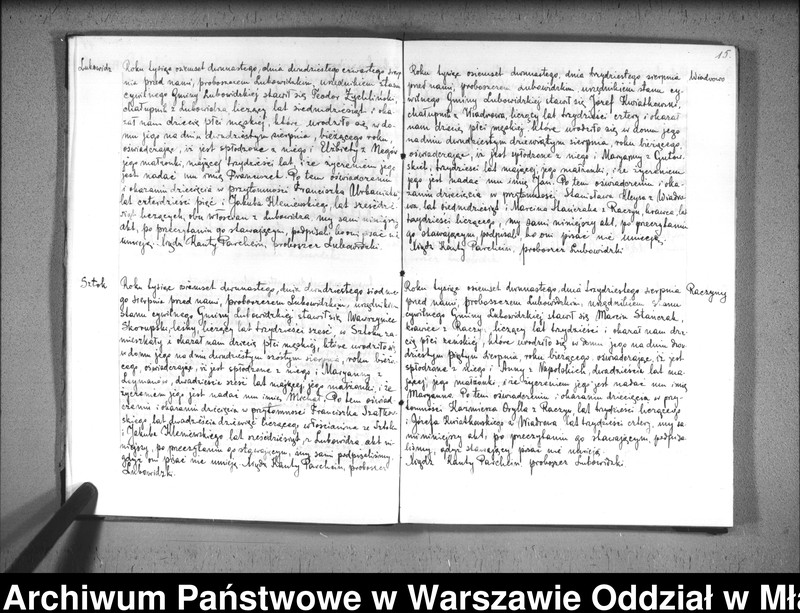 15.
Lubowidz
Roku tysiąc osiemset dwunastego, dnia dwudziestego czwartego sierp
nia przed nami, proboszczem Lubowidzkim, urzędnikiem stanu
cywilnego Gminy Lubowidzkiej stawił się Teodor Żychliński,
chałupnik z Lubowidza liczący lat siedmdziesiąt i oka-
zał nam dziecię płci męskiej, które urodziło się w do-
mu jego na dniu dwudziestym sierpnia, bieżącego roku,
oświadczając, iż jest spłodzone z niego i Elżbiety z
jego małżonki, mającej trzydzieści lat, i że życzeniem jego
jest nadać mu imię Wawrzyniec. Po tem oświadczeniu
i okazaniu dziecięcia w przytomności Franciszka Urbańskiego
lat czterdzieści pięć i Jakuba Kleniewskiego, lat sześćdzie-
siąt liczących, obu włościan z Lubowidza my sami niniejszy
akt, po przeczytaniu go stawającym, podpisali bo oni pisać nie
umieją. Xiądz Kanty Parchem, proboszcz Lubowidzki.
Sztok
Roku tysiąc osiemset dwunastego, dnia dwudziestego siódme-
go sierpnia przed nami, proboszczem Lubowidzkim, urzędnikiem
stanu cywilnego Gminy Lubowidzkiej stawił się Wawrzyniec
Skorupski, leśny, liczący lat trzydzieści sześć, w Sztoku za-
mieszkały i okazał nam dziecię płci męskiej, które urodziło się
w domu jego na dniu dwudziestym szóstym sierpnia, roku bieżą-
cego, oświadczając, iż jest spłodzone z niego i Maryanny z
Szymanów, dwadzieścia sześć lat mającej jego małżonki, i że
życzeniem jego jest nadać mu imię Michał. Po tem oświad-
czeniu i okazaniu dziecięcia w przytomności Franciszka
skiego lat dwadzieścia dziewięć liczącego włościanina w Sztoku
i Jakuba Kleniewskiego lat sześćdziesiąt, z Lubowidza akt ni-
niejszy, po przeczytaniu go stawającym, my sami podpisaliśmy,
gdyż oni pisać nie umieją. Xiądz Kanty Parchem, proboszcz
Lubowidzki.
Wiadrowo
Roku tysiąc osiemset dwunastego, dnia trzydziestego sierpnia
przed nami, proboszczem Lubowidzkim, urzędnikiem stanu cy-
wilnego Gminy Lubowidzkiej stawił się Józef Kwiatkowski,
chałupnik z Wiadrowa, liczący lat trzydzieści cztery i okazał
nam dziecię płci męskiej, które urodziło się w domu jego
na dniu dwudziestym dziewiątym sierpnia, roku bieżącego,
oświadczając, iż jest spłodzone z niego i Maryanny z
skich, trzydzieści lat mającej, jego małżonki, i że życzeniem
jego jest nadać mu imię Jan. Po tem oświadczeniu i oka-
zaniu dziecięcia w przytomności Stanisława z Wiadro-
wa, lat siedmdziesiąt i Marcina Staniraka z Raczyn, krawca, lat
trzydzieści liczącego, my sami niniejszy akt, po przeczytaniu
go stawającym, podpisali bo oni pisać nie umieją.
Xiądz Kanty Parchem, proboszcz Lubowidzki
Raczyny
Roku tysiąc osiemset dwunastego, dnia trzydziestego sierpnia
przed nami, proboszczem Lubowidzkim, urzędnikiem stanu
cywilnego Gminy Lubowidzkiej stawił się Marcin Stanirak,
krawiec z Raczyn, liczący lat trzydzieści i okazał nam dzie-
cię płci żeńskiej, które urodziło się w domu jego na dniu dwu-
dziestym piątym sierpnia, roku bieżącego, oświadczając, iż jest
spłodzone z niego i Anny z Napolskich, dwadzieścia lat ma-
jącej, jego małżonki, i że życzeniem jego jest nadać mu imię
Maryanna. Po tem oświadczeniu i okazaniu dziecięcia, w przy-
tomności Kazimierza z Raczyn, lat trzydzieści liczącego
i Józefa Kwiatkowskiego z Wiadrowa lat trzydzieści cztery, my sa-
mi niniejszy akt, po przeczytaniu go stawającym, podpisa-
liśmy, gdyż stawający pisać nie umieją.
Xiądz Kanty Parchem, proboszcz Lubowidzki
Archiwum Państwowe w Warszawie Oddział w Mła